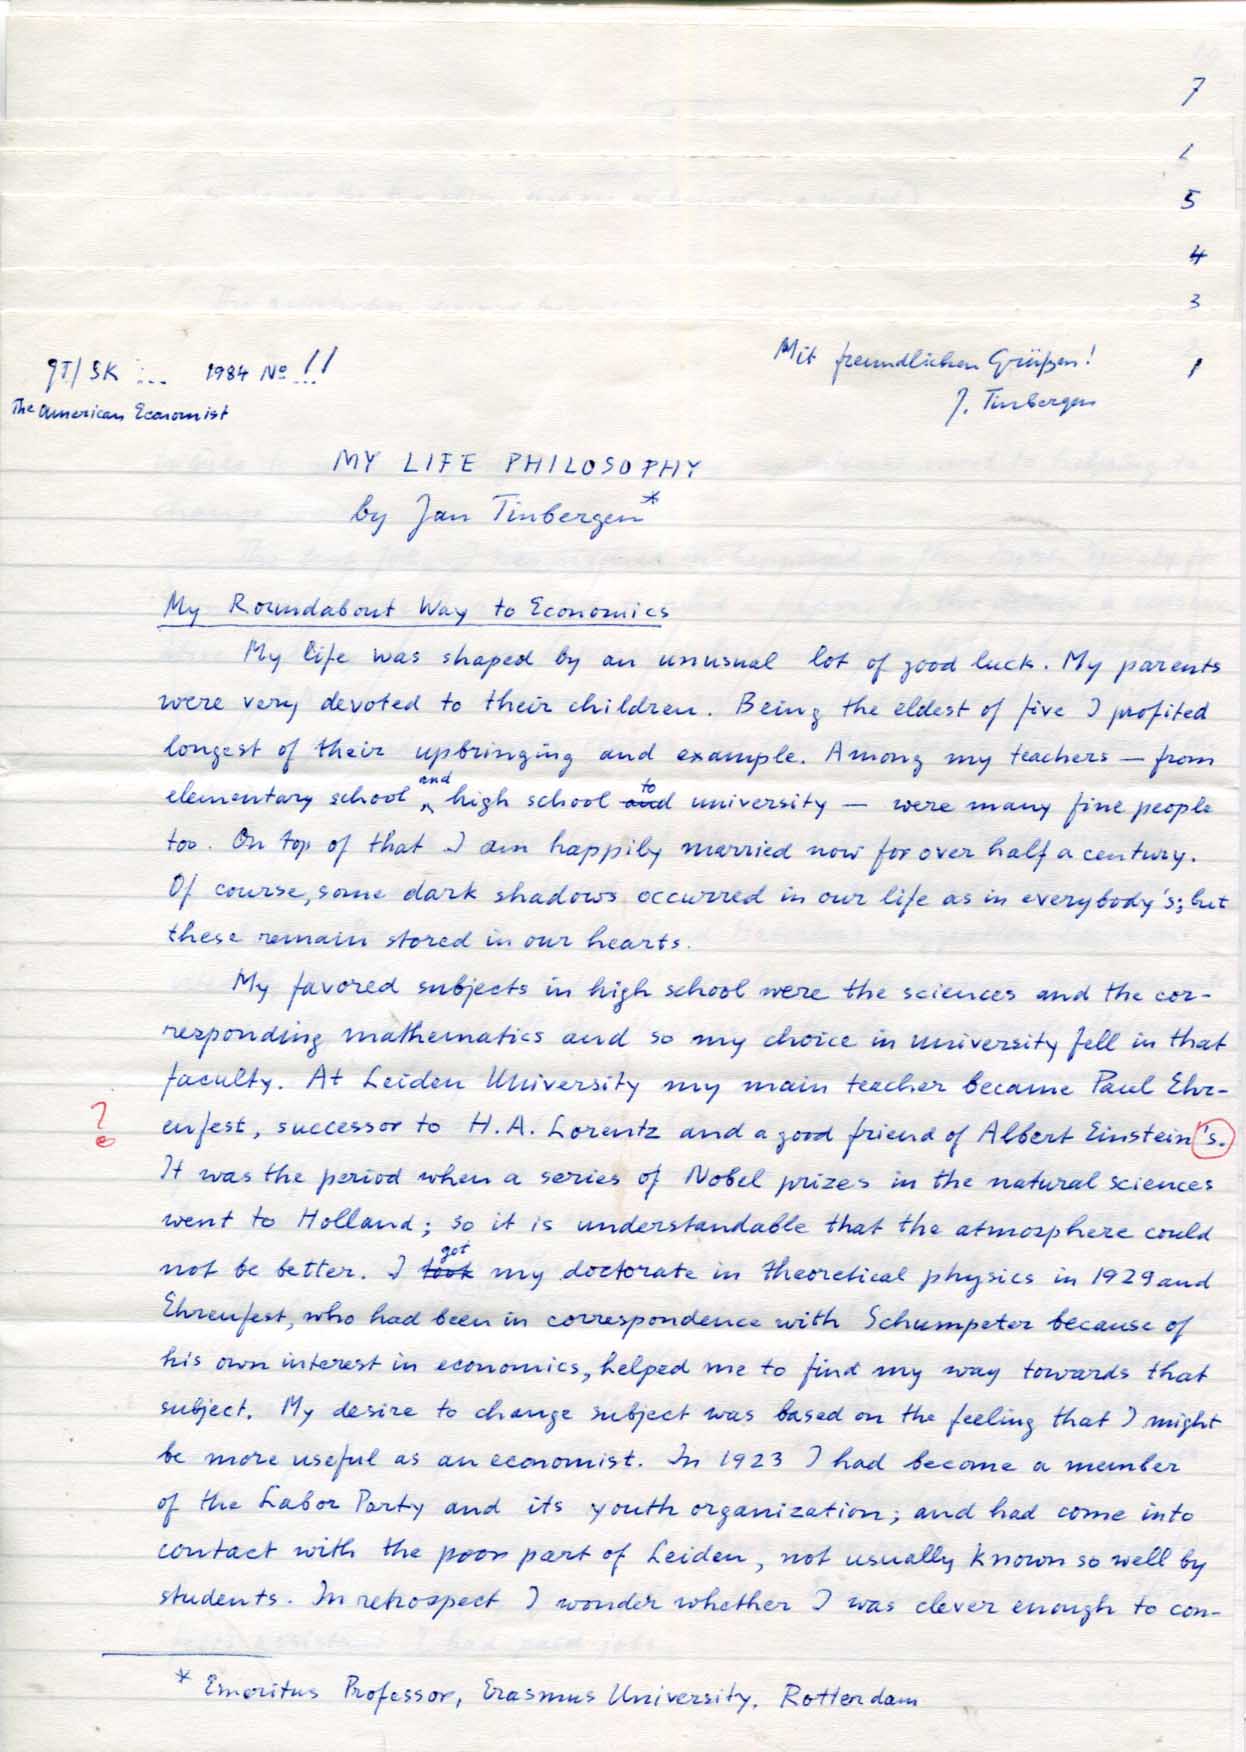 7
5
4
3
1
JT/SK ... 1984 No !!
Mit freundlichen Grüßen!
The American Economist
J. Tinbergen
MY LIFE PHILOSOPHY
by Jan Tinbergen*
My Roundabout Way to Economics
My life was shaped by an unusual lot of good luck. My parents
were very devoted to their children. Being the eldest of five I profited
longest of their upbringing and example. Among my teachers — from
elementary school and high school to university — were many fine people
too. On top of that I am happily married now for over half a century.
Of course, some dark shadows occurred in our life as in everybody's; but
these remain stored in our hearts.
My favored subjects in high school were the sciences and the cor-
responding mathematics and so my choice in university fell in that
faculty. At Leiden University my main teacher became Paul Ehr-
? enfest, successor to H.A. Lorentz and a good friend of Albert Einstein's.
It was the period when a series of Nobel prizes in the natural sciences
went to Holland; so it is understandable that the atmosphere could
not be better. I got my doctorate in theoretical physics in 1929 and
Ehrenfest, who had been in correspondence with Schumpeter because of
his own interest in economics, helped me to find my way towards that
subject. My desire to change subject was based on the feeling that I might
be more useful as an economist. In 1923 I had become a member
of the Labor Party and its youth organization; and had come into
contact with the poor part of Leiden, not usually known so well by
students. In retrospect I wonder whether I was clever enough to con-
* Emeritus Professor, Erasmus University, Rotterdam